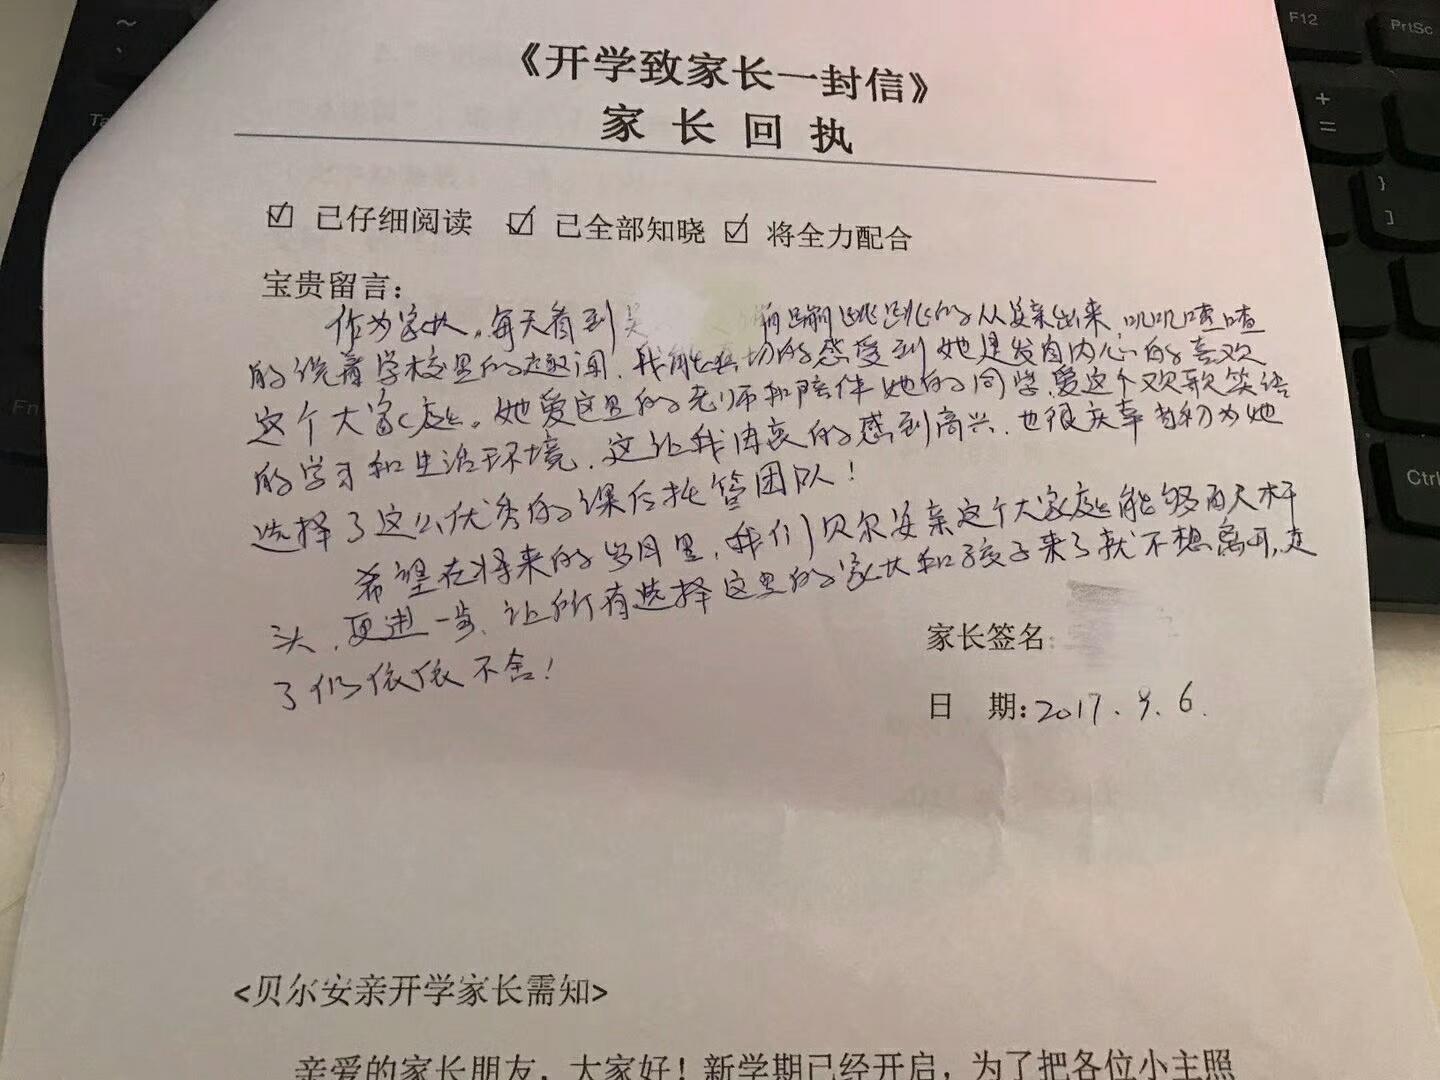 《开学致家长一封信》
家 长 回 执
☑ 已仔细阅读 ☑ 已全部知晓 ☑ 将全力配合
宝贵留言：
作为家长，每天看到吴 蹦蹦跳跳的从安亲出来，叽叽喳喳
的说着学校里的趣闻，我能真切的感受到她是发自内心的喜欢
这个大家庭。她爱这里的老师和陪伴她的同学，爱这个欢歌笑语
的学习和生活环境，这让我由衷的感到高兴，也很庆幸当初为她
选择了这么优秀的课后托管团队！
希望在将来的岁月里，我们贝尔安亲这个大家庭能够百尺杆
头，更进一步，让所有选择这里的家长和孩子来了就不想离开，走
了仍依依不舍！
家长签名
日 期：2017.9.6.
<贝尔安亲开学家长需知>
亲爱的家长朋友，大家好！新学期已经开启，为了把各位小主照
~
`
Ta
Fn
F12
PrtSc
+
=
}
]
Ctrl